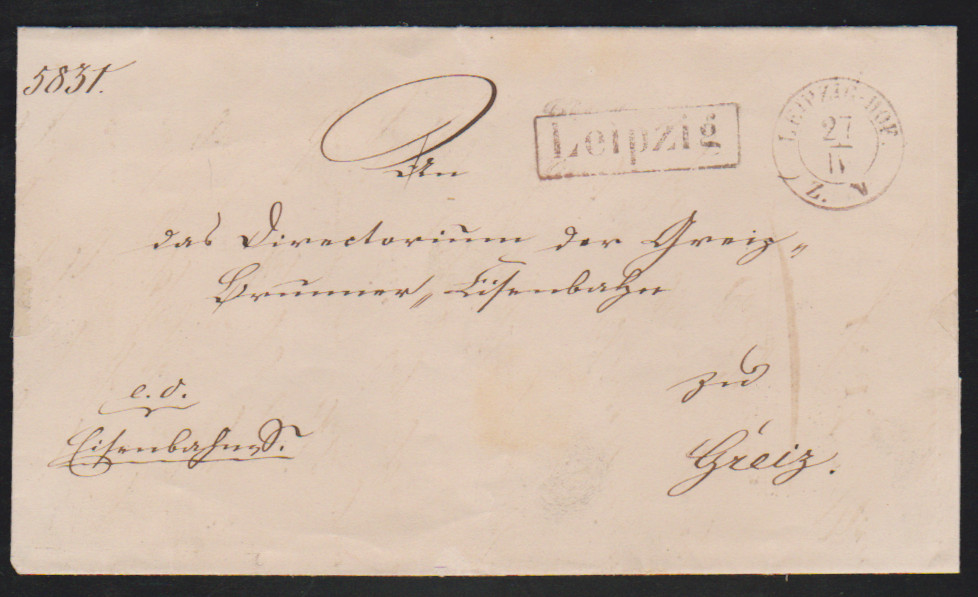 5831.
Leipzig
LEIPZIG-HOF.
27
II
Z. V
An
das Directorium der Greiz-
Brunner-Eisenbahn
zu
e. d.
EisenbahnS.
Greiz.